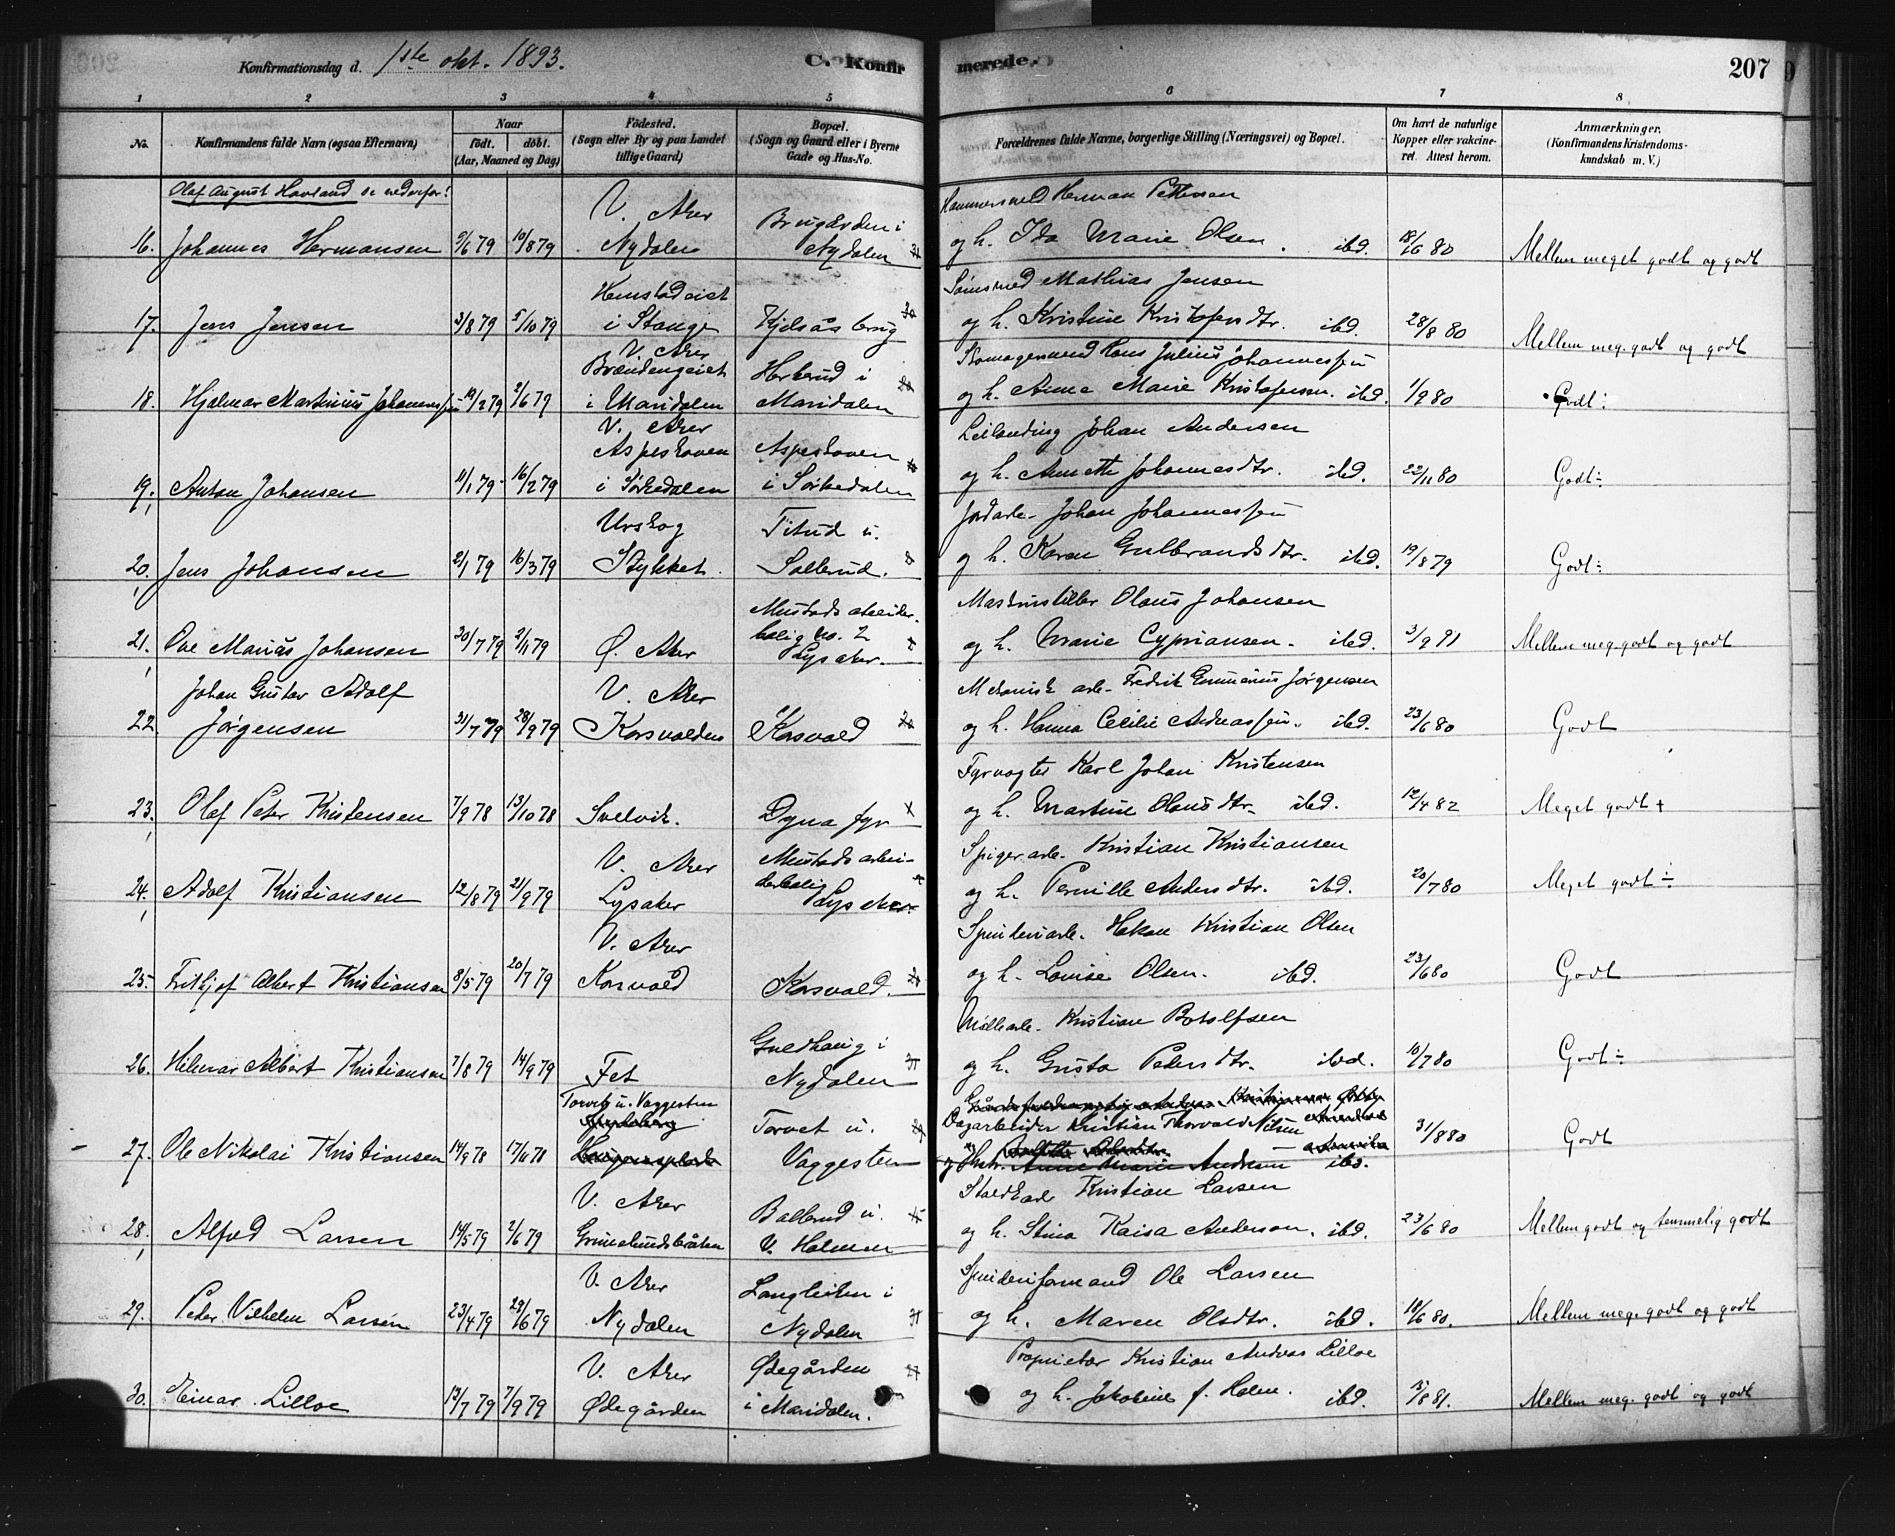 Konfirmationsdag d. 1ste okt. 1893. C. Konfirmerede. 207
1 2 3 4 5 6 7 8
No. Konfirmandens fulde Navn (ogsaa Efternavn) Naar født. døbt. (Aar, Maaned og Dag) Fødested. (Sogn eller By og paa Landet tillige Gaard) Bopæl. (Sogn og Gaard eller i Byerne Gade og Hus-No. Forældrenes fulde Navne, borgerlige Stilling (Næringsvei) og Bopæl. Om havt de naturlige Kopper eller vakcineret. Attest herom. Anmærkninger. (Konfirmandens Kristendomskundskab m. V.)
Olaf August Havland se nedenfor!
V. Aker Brugården i Hammersmed Herman Pettersen
16. Johannes Hermansen 9/6 79 10/8 79 Nydalen Nydalen og h. Ida Marie Olsen. ibd. 18/6 80 Mellem meget godt og godt
Hemstadeiet Sømsmed Mathias Jensen
17. Jens Jensen 3/8 79 5/10 79 i Stange Kjelsås brug og h. Kristine Kristofersdtr. ibd. 28/8 80 Mellem meg. godt og godt
V. Aker
Brændengeiet Herkerud i Skomagersvend Hans Julius Johannessen
18. Hjalmar Martinius Johannessen 19/2 79 2/6 79 i Maridalen Maridalen og h. Anne Marie Kristofersen. ibd. 1/9 80 Godt÷
V. Aker
Aspeskoven Aspeskoven Leilending Johan Andersen
19. Anton Johansen 11/1 79 16/2 79 i Sørkedalen i Sørkedalen og h. Annette Johannesdtr. ibd. 22/11 80 Godt÷
Urskog Titrud u. Jordarb. Johan Johannessen
20. Jens Johansen 2/1 79 16/3 79 Stykket Sollerud. og h. Karen Gulbrandsdtr. ibd. 19/8 79 Godt÷
Mustads arbeider- Maskinstiller Olaus Johansen
21. Ove Marius Johansen 30/7 79 2/11 79 Ø. Aker bolig No. 2 Lysaker. og h. Marie Cypriansen. ibd. 3/9 91 Mellem meg. godt og godt
Johan Gustav Adolf V. Aker Mekanisk arb. Fredrik Enumius Jørgensen
22 Jørgensen 31/7 79 28/9 79 Korsvolden Korsvold og h. Hanna Cecilie Andreassen. ibd. 23/6 80 Godt
Fyrvogter Karl Johan Kristensen
23. Olaf Peter Kristensen 7/9 78 13/10 78 Svelvik. Dyna fyr og h. Martine Olausdtr. ibd. 12/4 82 Meget godt +
V. Aker Mustads arbei- Spigerarb. Kristian Kristiansen
24. Adolf Kristiansen 12/8 79 21/9 79 Lysaker derbolig Lysaker og h. Pernille Andersdtr. ibd. 20/7 80 Meget godt ÷
V. Aker Spinderiarb. Hakon Kristian Olsen
25. Frithjof Albert Kristiansen 8/5 79 20/7 79 Korsvold Korsvold. og h. Lovise Olsen. ibd. 23/6 80 Godt
Guldhaug i Møllearb. Kristian Botolfsen
26. Hilmar Albert Kristiansen 7/8 79 14/9 79 Fet Nydalen og h. Gusta Petersdtr. ibd. 10/7 80 Godt÷
Torvet u. Vaggesten Torvet u. Dagarbeider Kristian Thorvald Nilsen
27. Ole Nikolai Kristiansen 14/9 78 17/11 78 Vaggesten og Hstr. Anne Marie Andersen ibd. 31/8 80 Godt
V. Aker Ballerud u. Staldkarl Kristian Larsen
28. Alfred Larsen 14/5 79 2/6 79 Grimelundsbråten V. Holmen og h. Stina Kaisa Anderson. ibd. 23/6 80 Mellem godt og temmelig godt
V. Aker Langleiten i Spinderiformand Ole Larsen
29. Peter Vilhelm Larsen 23/4 79 29/6 79 Nydalen Nydalen og h. Maren Olsdtr. ibd. 18/6 80. Mellem meg. godt og godt
V. Aker Ødegården Proprietær Kristian Andreas Lilloe
30. Einar Lilloe 13/7 79 7/9 79 Ødegården i Maridalen. og h. Jakobine f. Holm. ibd. /8 81. Mellem meg. godt og godt